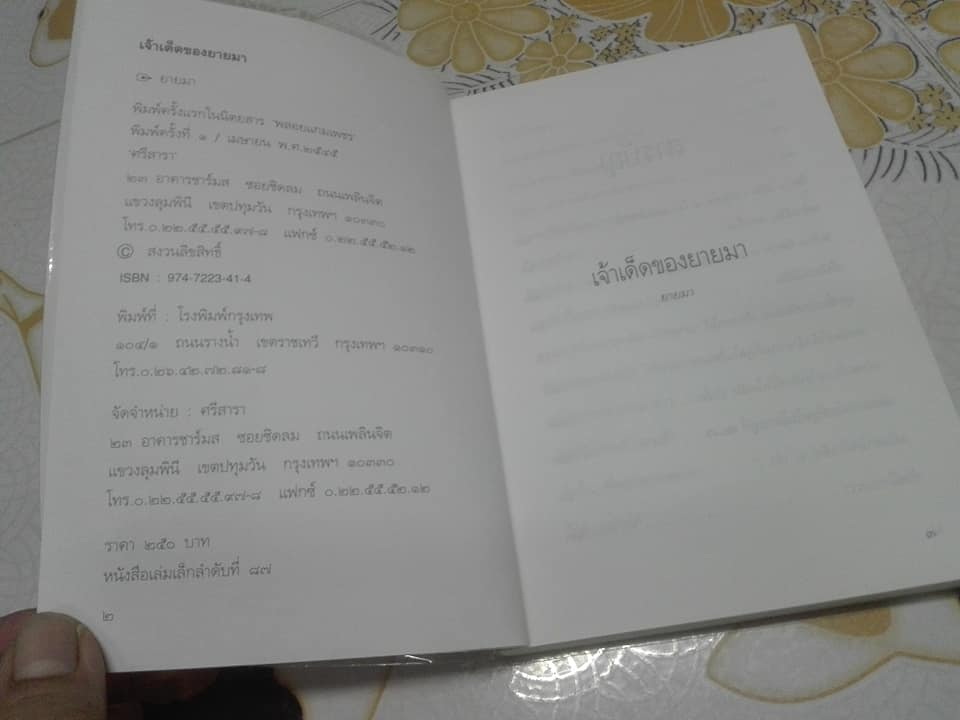 เจ้าเด็ดของยายมา
ยายมา
พิมพ์ครั้งแรกในนิตยสาร พลอยแกมเพชร
พิมพ์ครั้งที่ ๑ / เมษายน พ.ศ.๒๕๔๕
ศรีสารา
๒๓ อาคารชาร์มส ซอยชิดลม ถนนเพลินจิต
แขวงลุมพินี เขตปทุมวัน กรุงเทพฯ ๑๐๓๓๐
โทร.๐.๒๒.๕๕.๕๕.๙๗-๘ แฟกซ์ ๐.๒๒.๕๕.๕๒.๑๒
© สงวนลิขสิทธิ์
ISBN : 974-7223-41-4
พิมพ์ที่ : โรงพิมพ์กรุงเทพ
๑๐๔/๑ ถนนรางน้ำ เขตราชเทวี กรุงเทพฯ ๑๐๓๑๐
โทร.๐.๒๖.๔๒.๗๒.๘๑-๘
จัดจำหน่าย : ศรีสารา
๒๓ อาคารชาร์มส ซอยชิดลม ถนนเพลินจิต
แขวงลุมพินี เขตปทุมวัน กรุงเทพฯ ๑๐๓๓๐
โทร.๐.๒๒.๕๕.๕๕.๙๗-๘ แฟกซ์ ๐.๒๒.๕๕.๕๒.๑๒
ราคา ๒๕๐ บาท
หนังสือเล่มเล็กลำดับที่ ๘๗
๒
เจ้าเด็ดของยายมา
ยายมา
๓